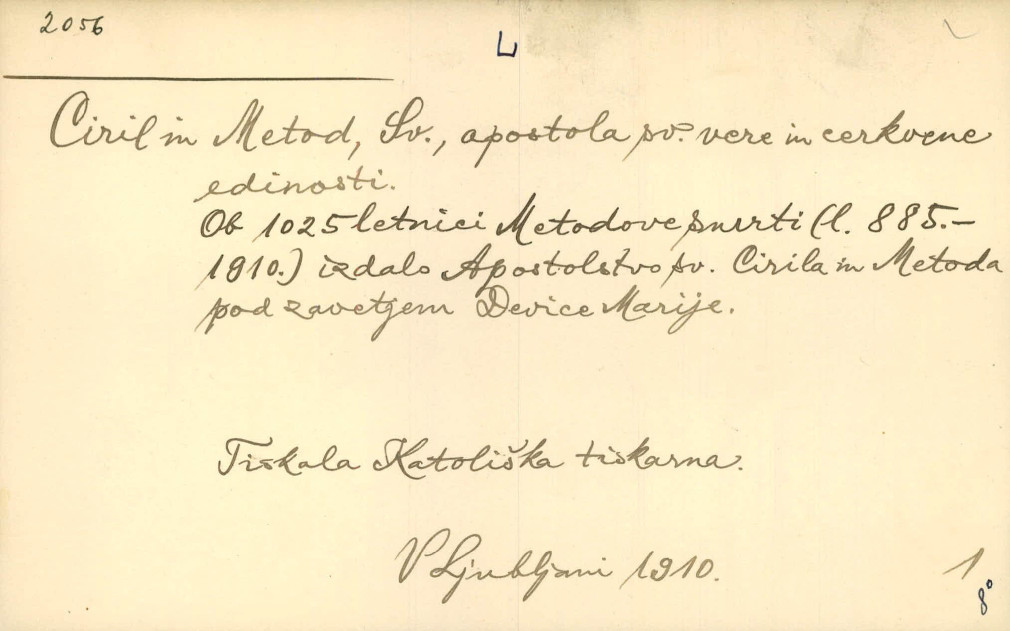 2056
L
Ciril in Metod, Sv., apostola sv. vere in cerkvene
edinosti.
Ob 1025letnici Metodove smrti (l. 885.–
1910.) izdalo Apostolstvo sv. Cirila in Metoda
pod zavetjem Device Marije.
Tiskala Katoliška tiskarna.
V Ljubljani 1910.
1
8°